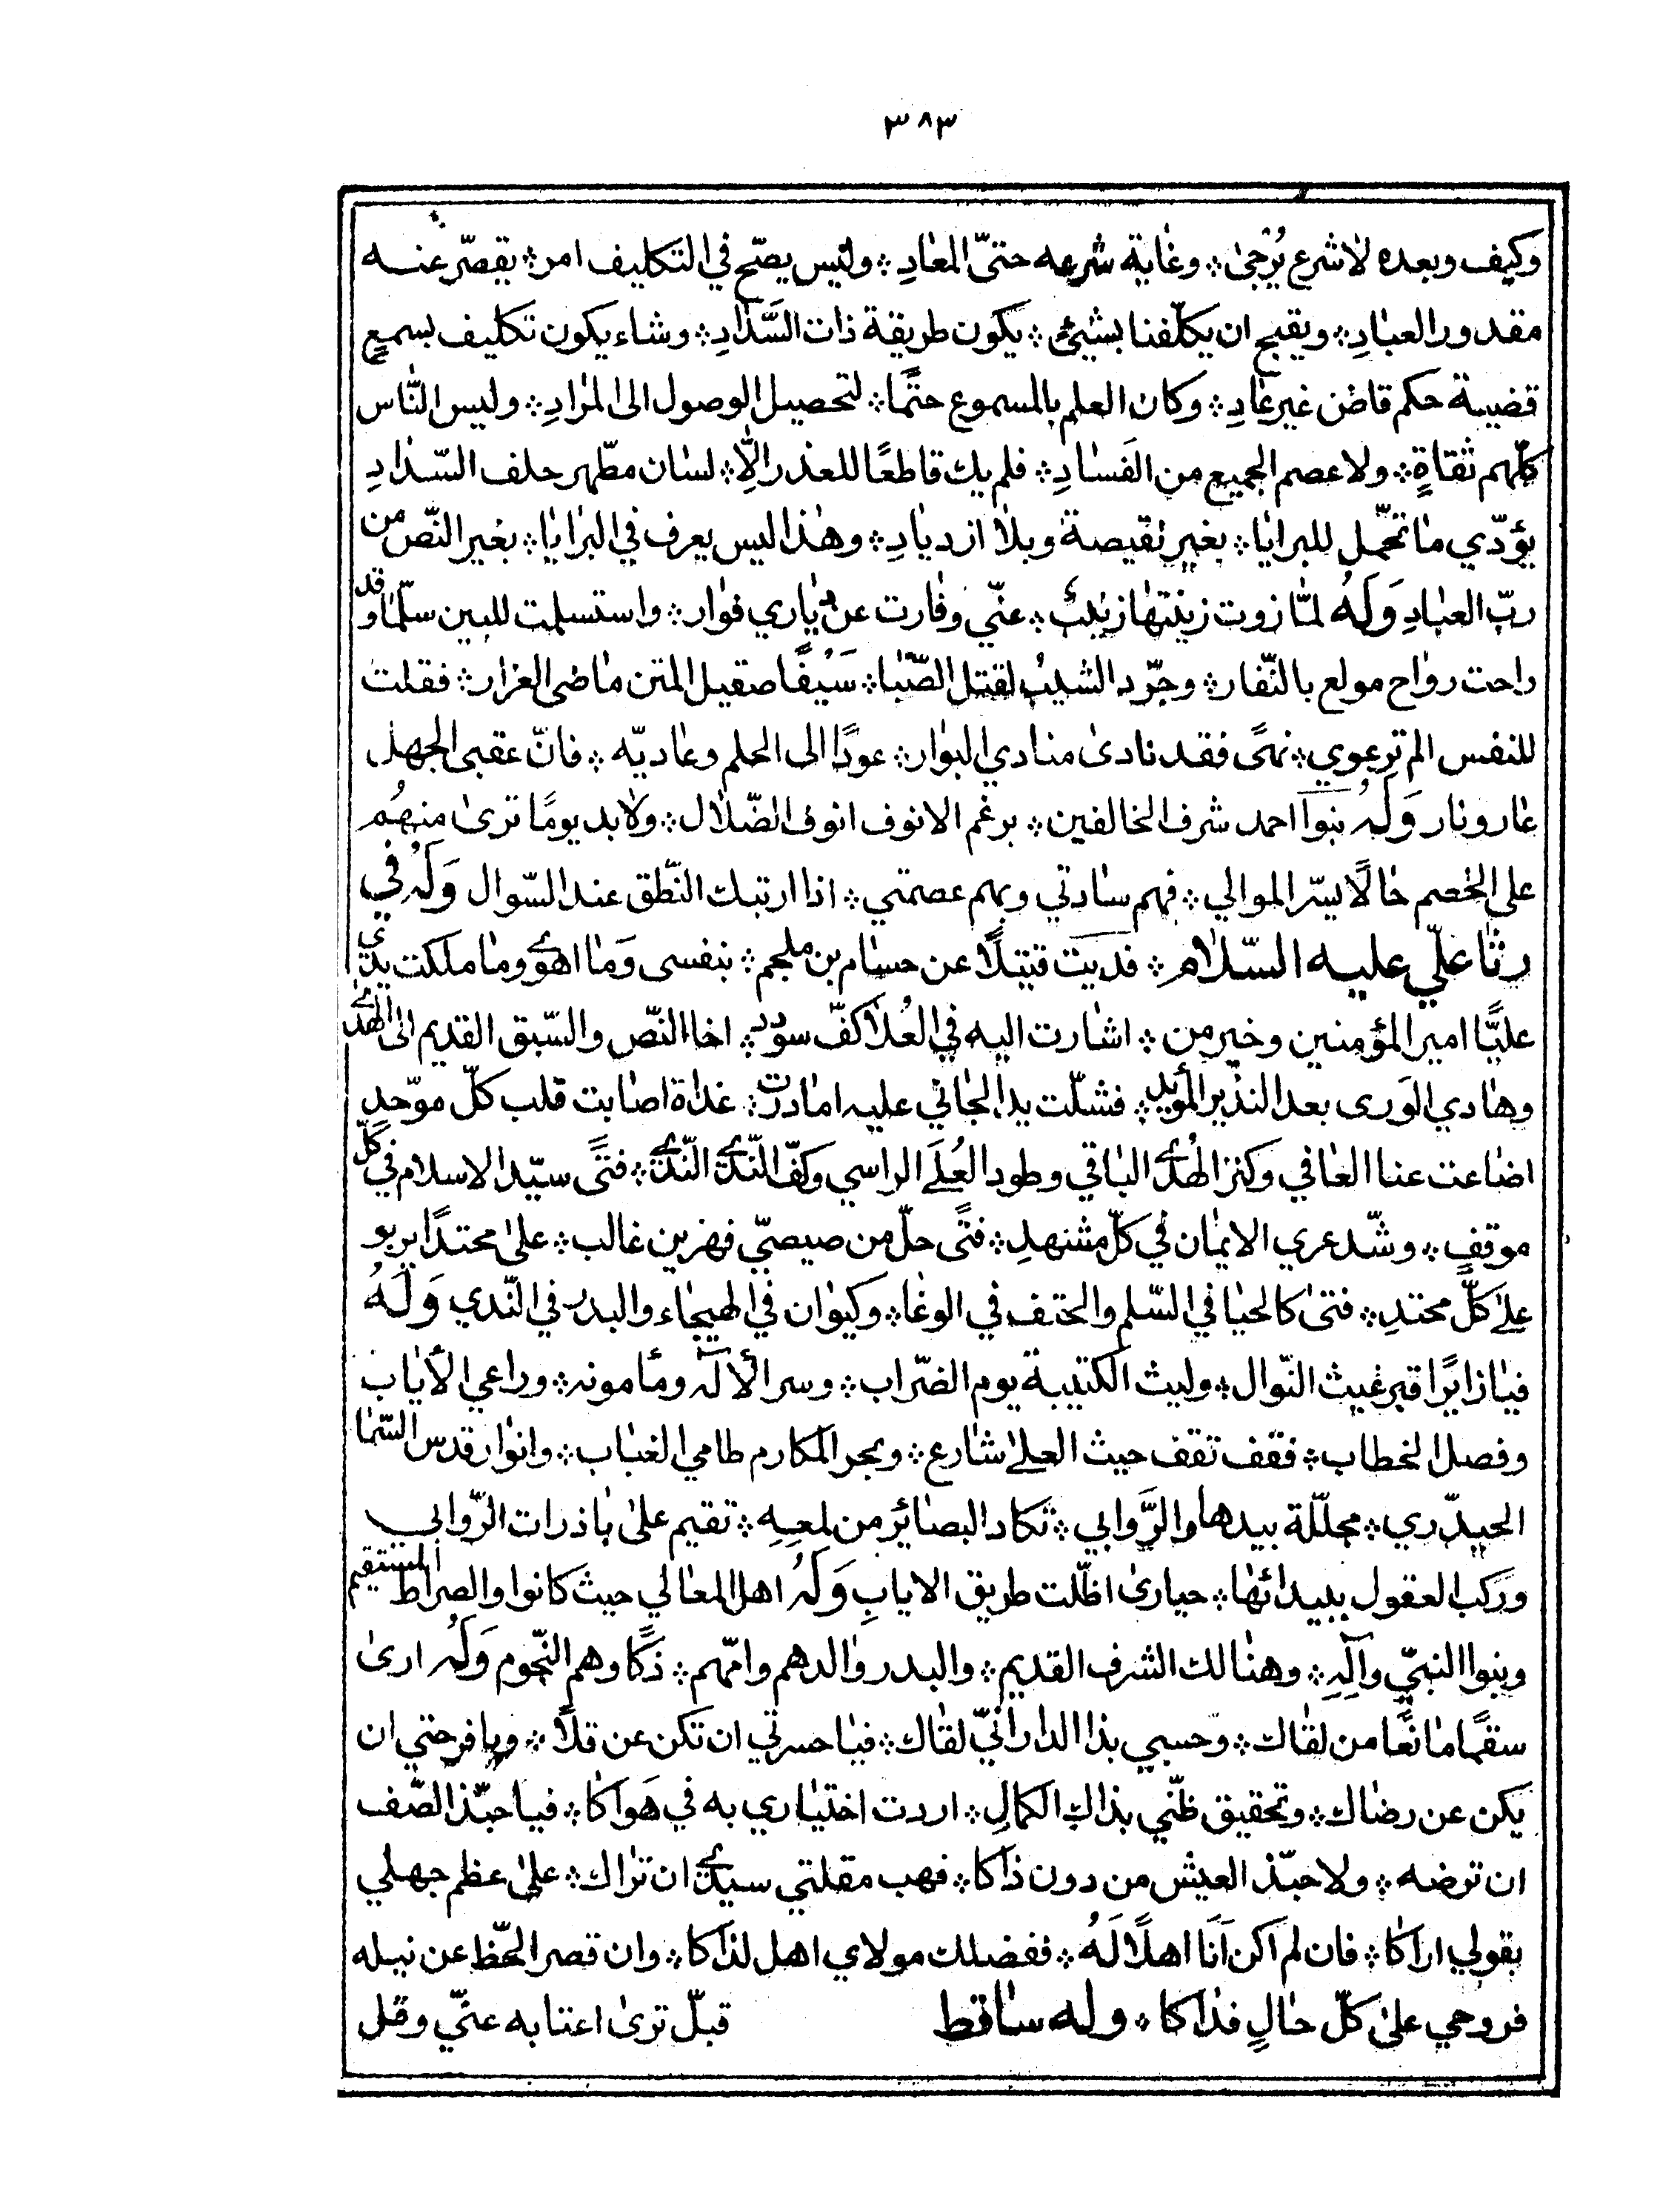 ٣٨٣
وكيف وبعده لا شرع يُرجىٰ ؞ وغاية شرعه حتىّ المعادِ ؞ وليس يصّح في التكليف امر ؞ يقصّر عنه
مقدور العبادِ ؞ ويقبح ان يكلّفنا بشيئ ؞ يكون طريقة ذات السَّدادِ ؞ وشاء يكون تكليف بسمعٍ
قضيية حكم قاض غير عادِ ؞ وكان العلم بالمسموع حتمًا ؞ لتحصيل الوصول الى المرادِ ؞ وليس النّاس
كلّهم ثقاةٍ ؞ ولا عصم الجميع من الفَسادِ ؞ فلم يك قاطعًا للعذر الّاِ ؞ لسان مطّهر حلف السّدادِ
يؤدّي ما تحمّل للبرايا ؞ بغير نقيصة وبلا ازديادِ ؞ وهذا ليس يعرف في البرايا ؞ بغير النّص من
ربّ العبادِ وَلَهُ لمّا زوت زينتها زينب ؞ عنّي وفارت عن ياري فوار ؞ واستسلمت للبين سلمًا وقد
راحت رواح مولع بالنّفار ؞ وجرّد الشيبُ لقتل الصّبا ؞ سَيْفًا صقيل المتن ماضى الغرار ؞ فقلت
للنفس الم ترعوي ؞ نهىً فقد نادىٰ منادي البوار ؞ عودًا الى الحلم وعاديّه ؞ فانّ عقبى الجهل
عار ونار وَلَهُ بنوا احمد شرف الخالفين ؞ برغم الانوف انوف الضّلال ؞ ولابد يومًا ترىٰ منهُم
على الخصم حالًا يسّر الموالي ؞ فهم سادتي وبهم عصمتي ؞ اذا ارتبك النّطق عند السّوال وَلَهُ في
رثا علّي عليه السّلام ؞ فديت قتيلًا عن حسام بن ملجم ؞ بنفسى وَما اهوىٰ وما ملكت يدّي
عليًّا امير المؤمنين وخير من ؞ اشارت اليه في العُلا كفّ سودد ؞ اخا النّص والسّبق القديم الى الهدىٰ
وهادي الوَرى بعد النذير المؤيد ؞ فشلّت يد الجاني عليه اما درت ؞ غداة اصابت قلب كلّ موّحدِ
اضاعت عنا العافي وكنز الهُدىٰ الباقي وطود العُلَےٰ الراسي وكفّ النّدىٰ النّدىٰ ؞ فتىً سيّد الاسلام في كلّ
موقفٍ ؞ وشّد عري الايمان في كلّ مشهدِ ؞ فتًى حلّ من صيصيّ فهر بن غالب ؞ علىٰ محتدًا يربو
علےٰ كلّ محتدِ ؞ فتىٰ كالحيا في السّلم والحتف في الوغا ؞ وكيوان في الهيجاء والبدر في النّدي وَلَهُ
فيا زايرًا قبر غيث النّوال ؞ وليث الكتيبة يوم الضّراب ؞ وسر الألآه ومأمونه ؞ وراعي الأياب
وفصل الخطاب ؞ فقف تقف حيث العلےٰ شارع ؞ وبحر المكارم طامي العُباب ؞ وانوار قدس السّما
الحيدّري ؞ مجلّلة بيدها والرَّوابي ؞ تكاد البصائر من لمعِهِ ؞ تقيم علىٰ باذرات الرّوابي
وركب العقول ببيدائها ؞ حيارىٰ اظّلت طريق الايابِ وَلَهُ اهل المعالي حيث كانوا والصراط المستقيم
وبنوا النبيّ وآلِهِ ؞ وهنا لك الشرف القديم ؞ والبدر والدهم وامّهم ؞ ذكًا وهم النّجوم وَلَهُ ارىٰ
سقمًا مانعًا من لقاك ؞ وحسبي بذا الداراٰنيّ لقاك ؞ فيا حسرتي ان تكن عن قلًا ؞ ويا فرحتي ان
يكن عن رضاك ؞ وتحقيق ظنّي بذاك الكمالِ ؞ اردت اختياري به في هَواكا ؞ فيا حبّذ الصّف
ان ترضه ؞ ولا حبّذ العيش من دون ذاكا ؞ فهب مقلتي سيدّےٰ ان تراك ؞ علىٰ عظم جهلي
بقولي اراكا ؞ فان لم اكن اَنَا اهلًا لَهُ ؞ ففضلك مولاي اهل لذاكا ؞ وان قصر الحّظ عن نيله
فروحي علىٰ كلّ حالٍ فداكا ؞ وله ساقط قبلّ ترىٰ اعتابه عنّي وقل